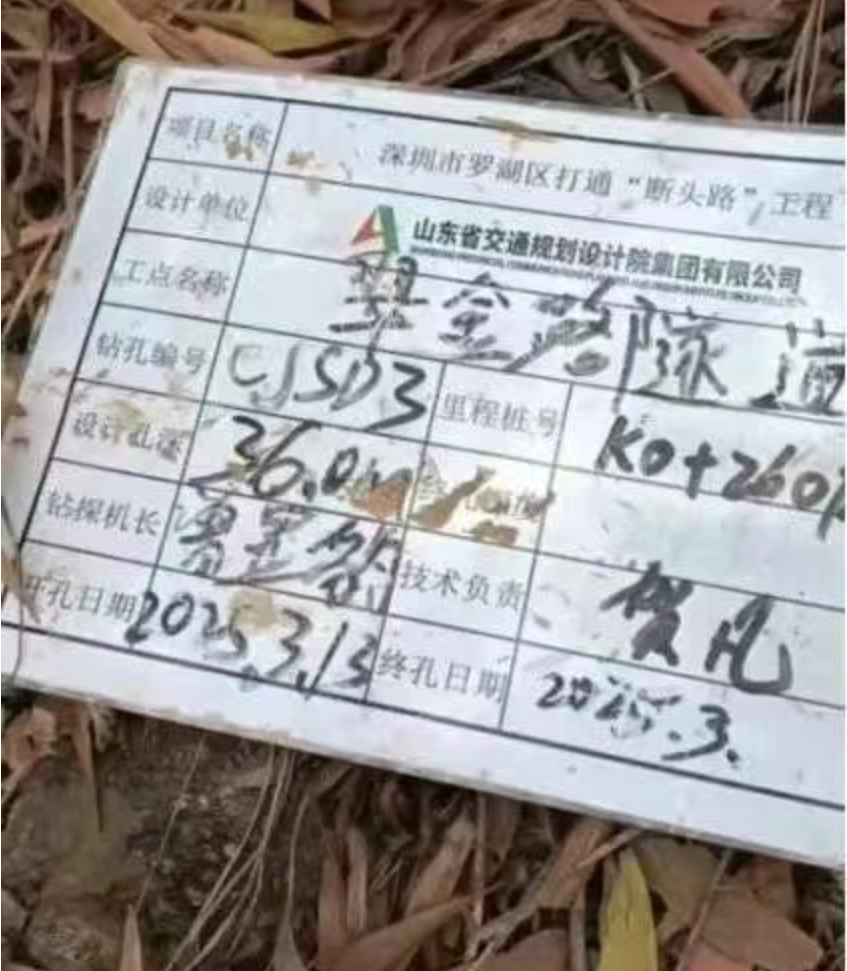 项目名称 深圳市罗湖区打通“断头路”工程
设计单位 山东省交通规划设计院集团有限公司
工点名称 翠金路隧道
钻孔编号 CJSD3 里程桩号 K0+260
设计孔深 36.0m
钻探机长 技术负责 贺凡
开孔日期 2025.3.13 终孔日期 2025.3.